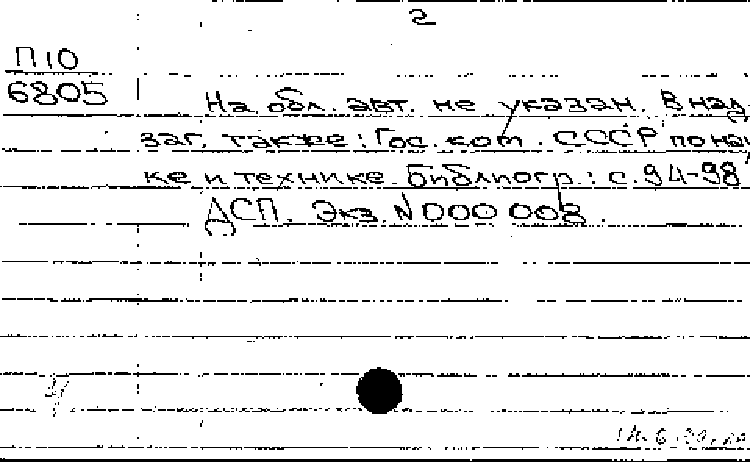 2
П10
6805
На обл. авт. не указан. В над
заг. также: Гос. ком. СССР по нау
ке и технике. Библиогр.: с. 94-98
ДСП. Экз. N 000 008.